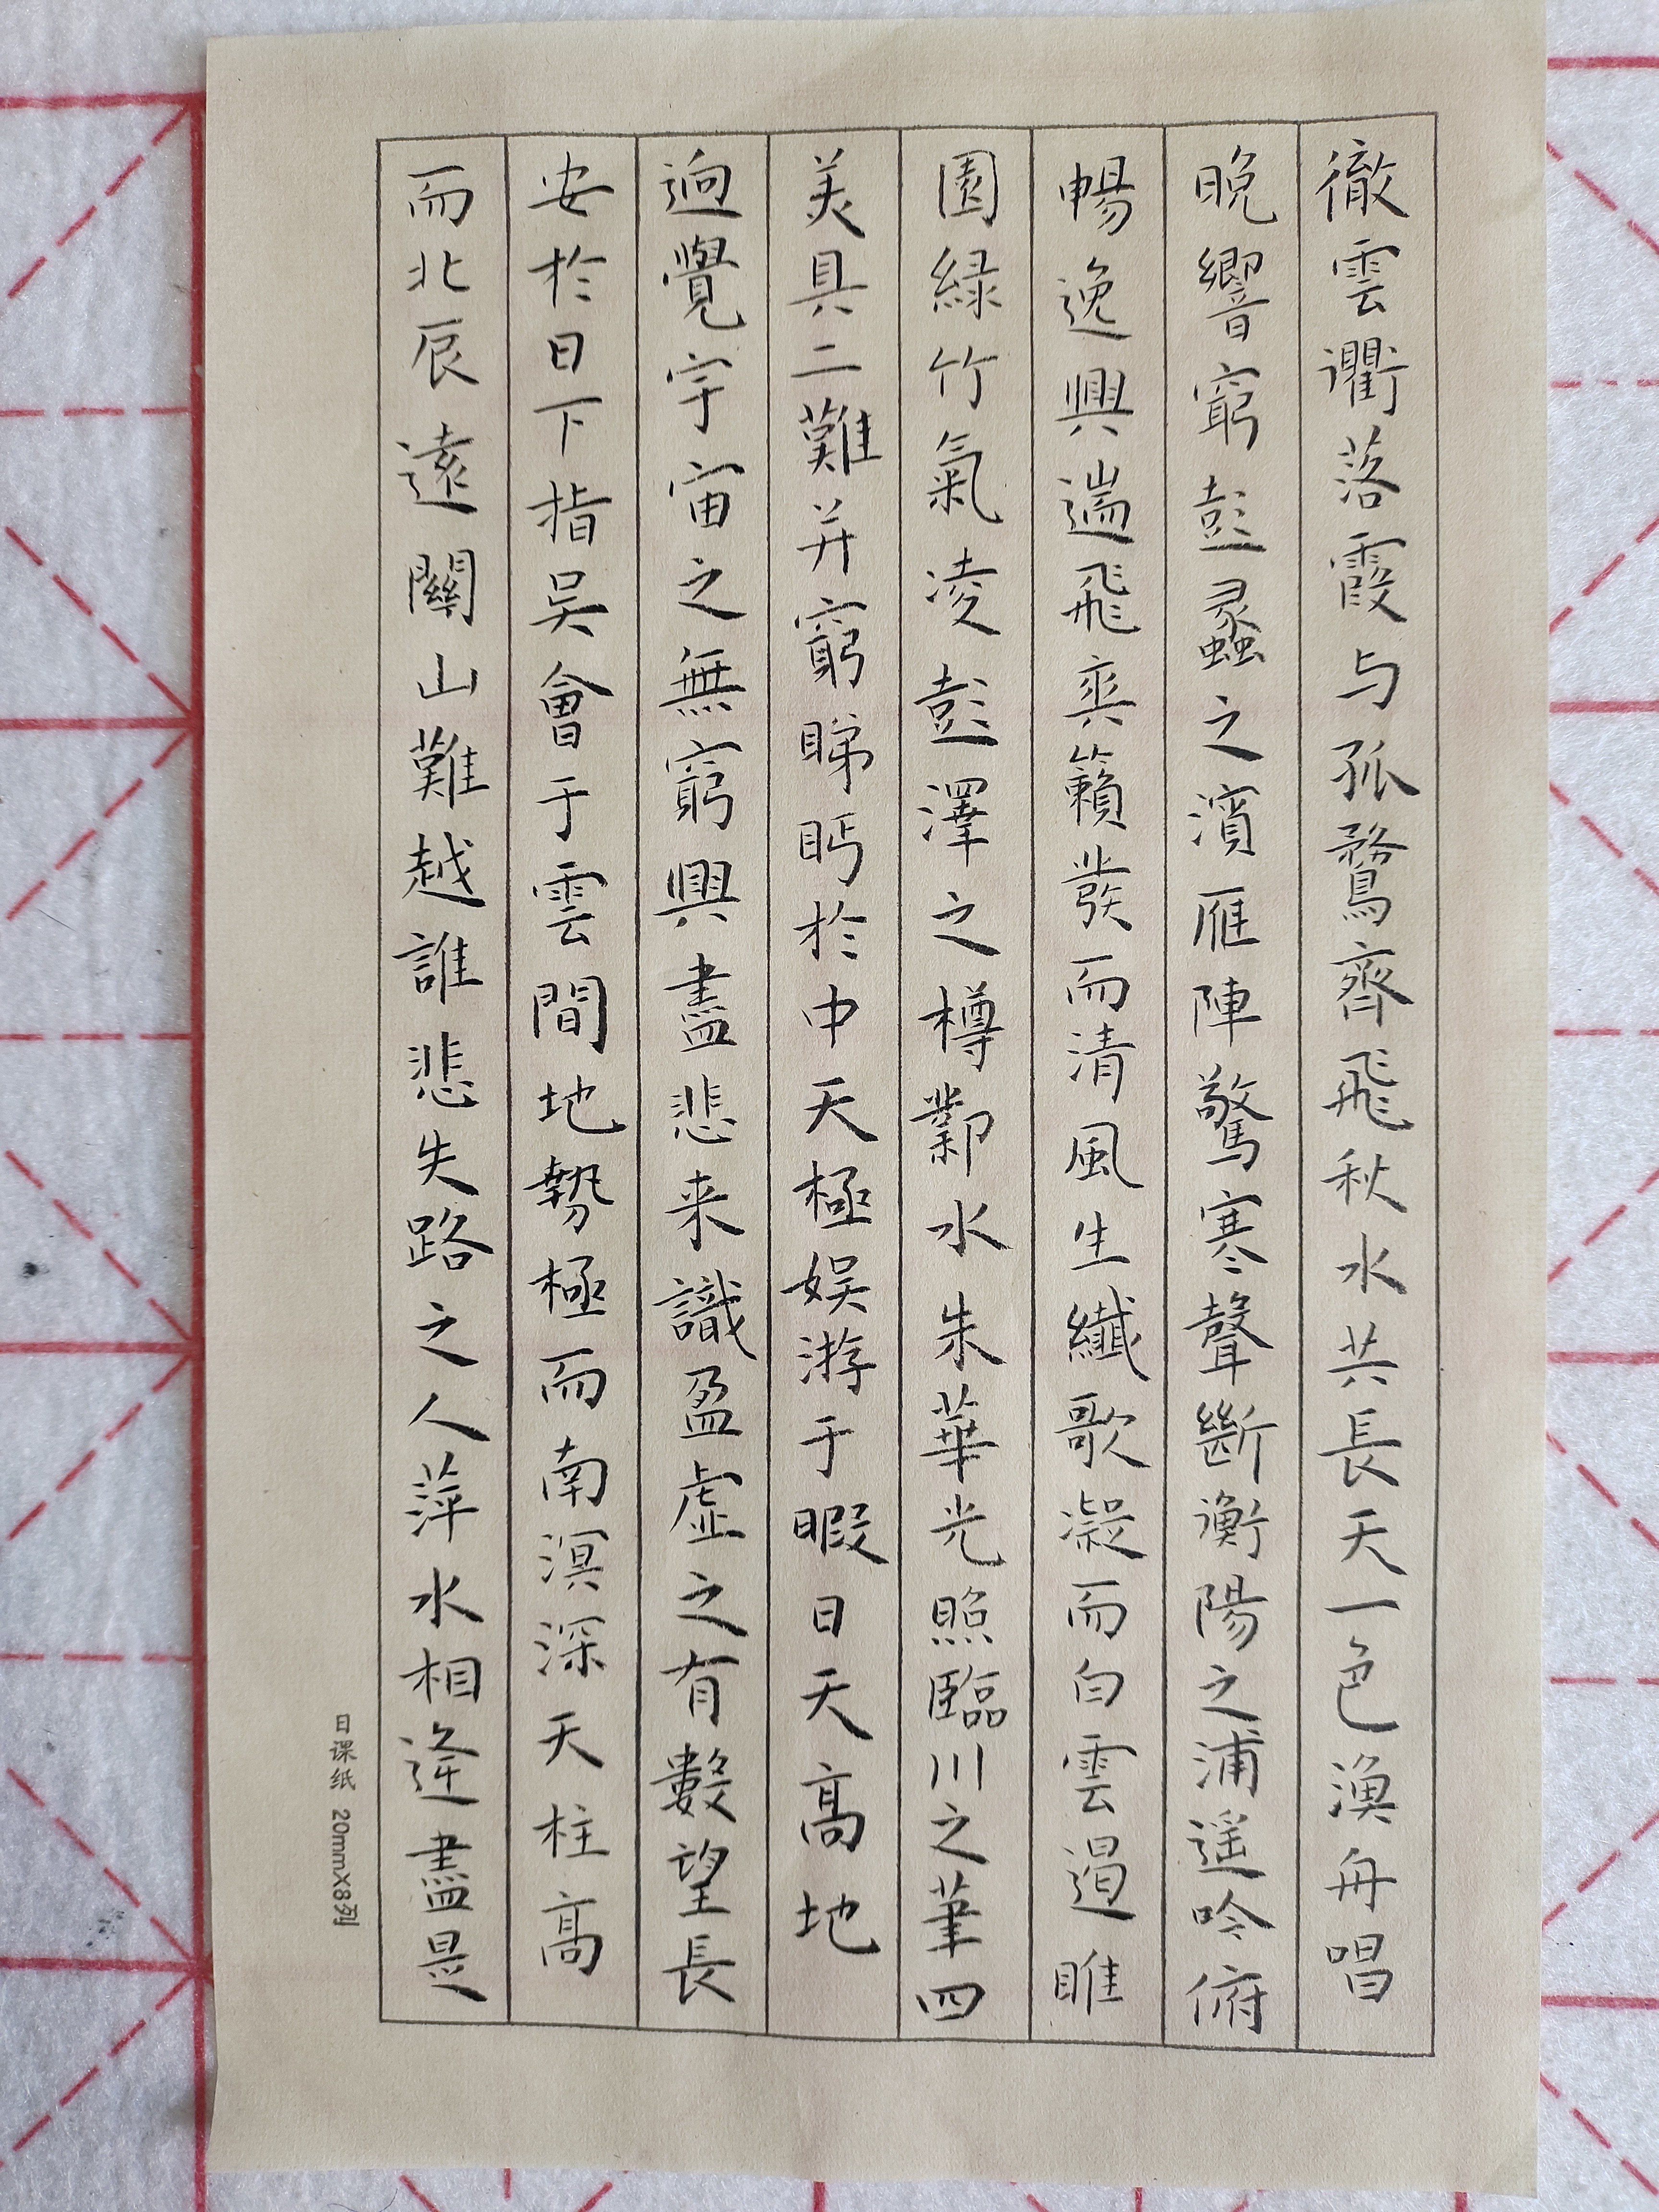 徹雲衢落霞与孤鶩齊飛秋水共長天一色漁舟唱
晚響窮彭蠡之濱雁陣驚寒聲斷衡陽之浦遥吟俯
暢逸興遄飛爽籟發而清風生纖歌凝而白雲遏睢
園緑竹氣凌彭澤之樽鄴水朱華光照臨川之筆四
美具二難并窮睇眄於中天極娱游于暇日天高地
迥覺宇宙之無窮興盡悲来識盈虚之有數望長
安於日下指吴會于雲間地勢極而南溟深天柱高
而北辰遠關山難越誰悲失路之人萍水相逢盡是
日课纸 20mmX8列